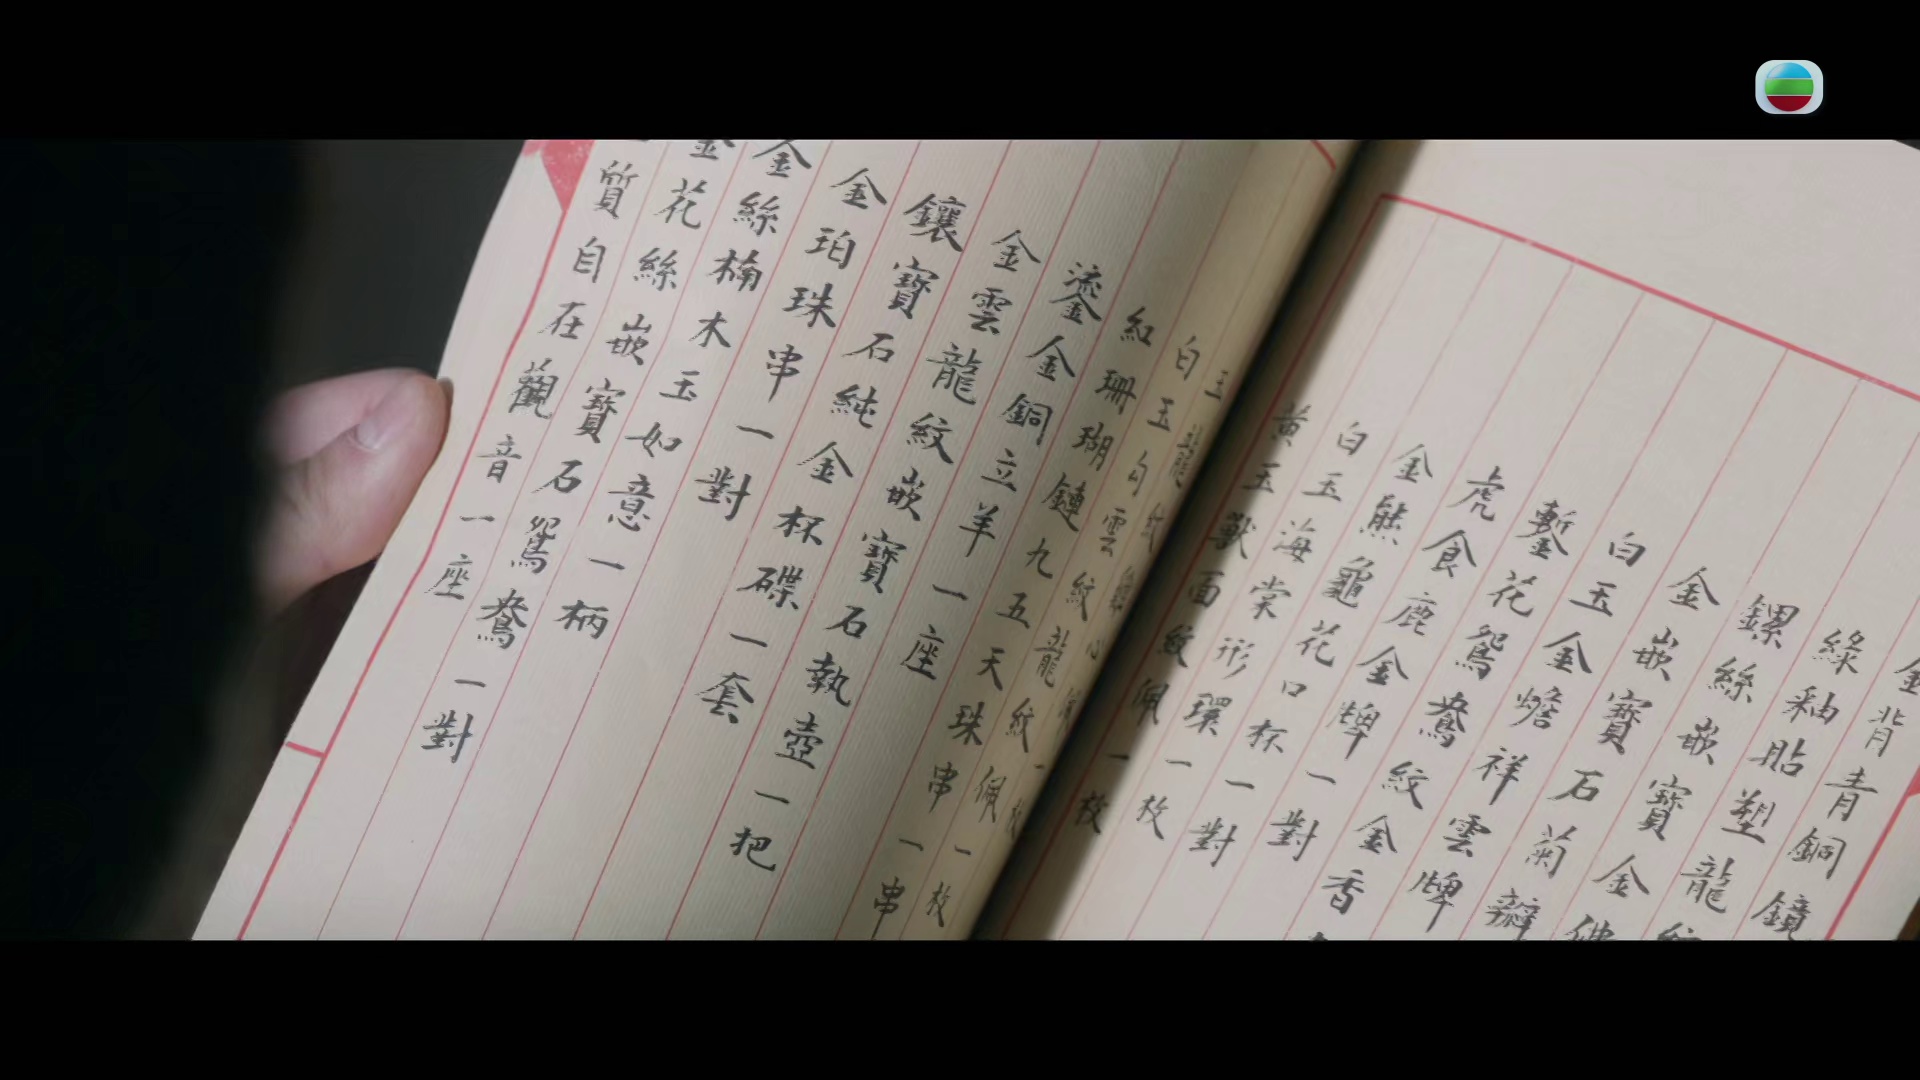 金背青銅鏡
綠釉貼塑龍紋
螺絲嵌寶金佛
金嵌寶石菊瓣
白玉金蟾祥雲牌
鏨花鴛鴦紋金香
虎食鹿金牌一對
金熊龜花口杯一對
白玉海棠形環一枚
黃玉獸面紋佩一枚
白玉勾雲紋龍紋佩一枚
紅珊瑚鏈九五天珠串一串
鎏金銅立羊一座
金雲龍紋嵌寶石執壺一把
鑲寶石純金杯碟一套
金珀珠串一對
金絲楠木玉如意一柄
金花絲嵌寶石鴛鴦一對
質自在觀音一座